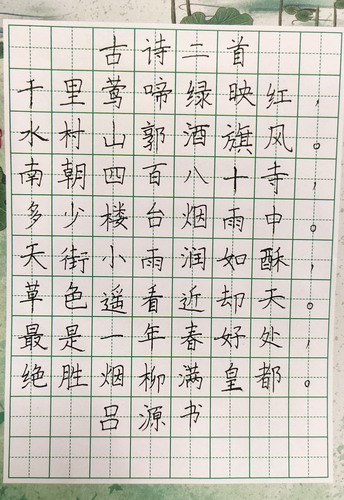 古诗二首
千里莺啼绿映红，
水村山郭酒旗风。
南朝四百八十寺，
多少楼台烟雨中。
天街小雨润如酥，
草色遥看近却天。
最是一年春好处，
绝胜烟柳满皇都。
吕源书